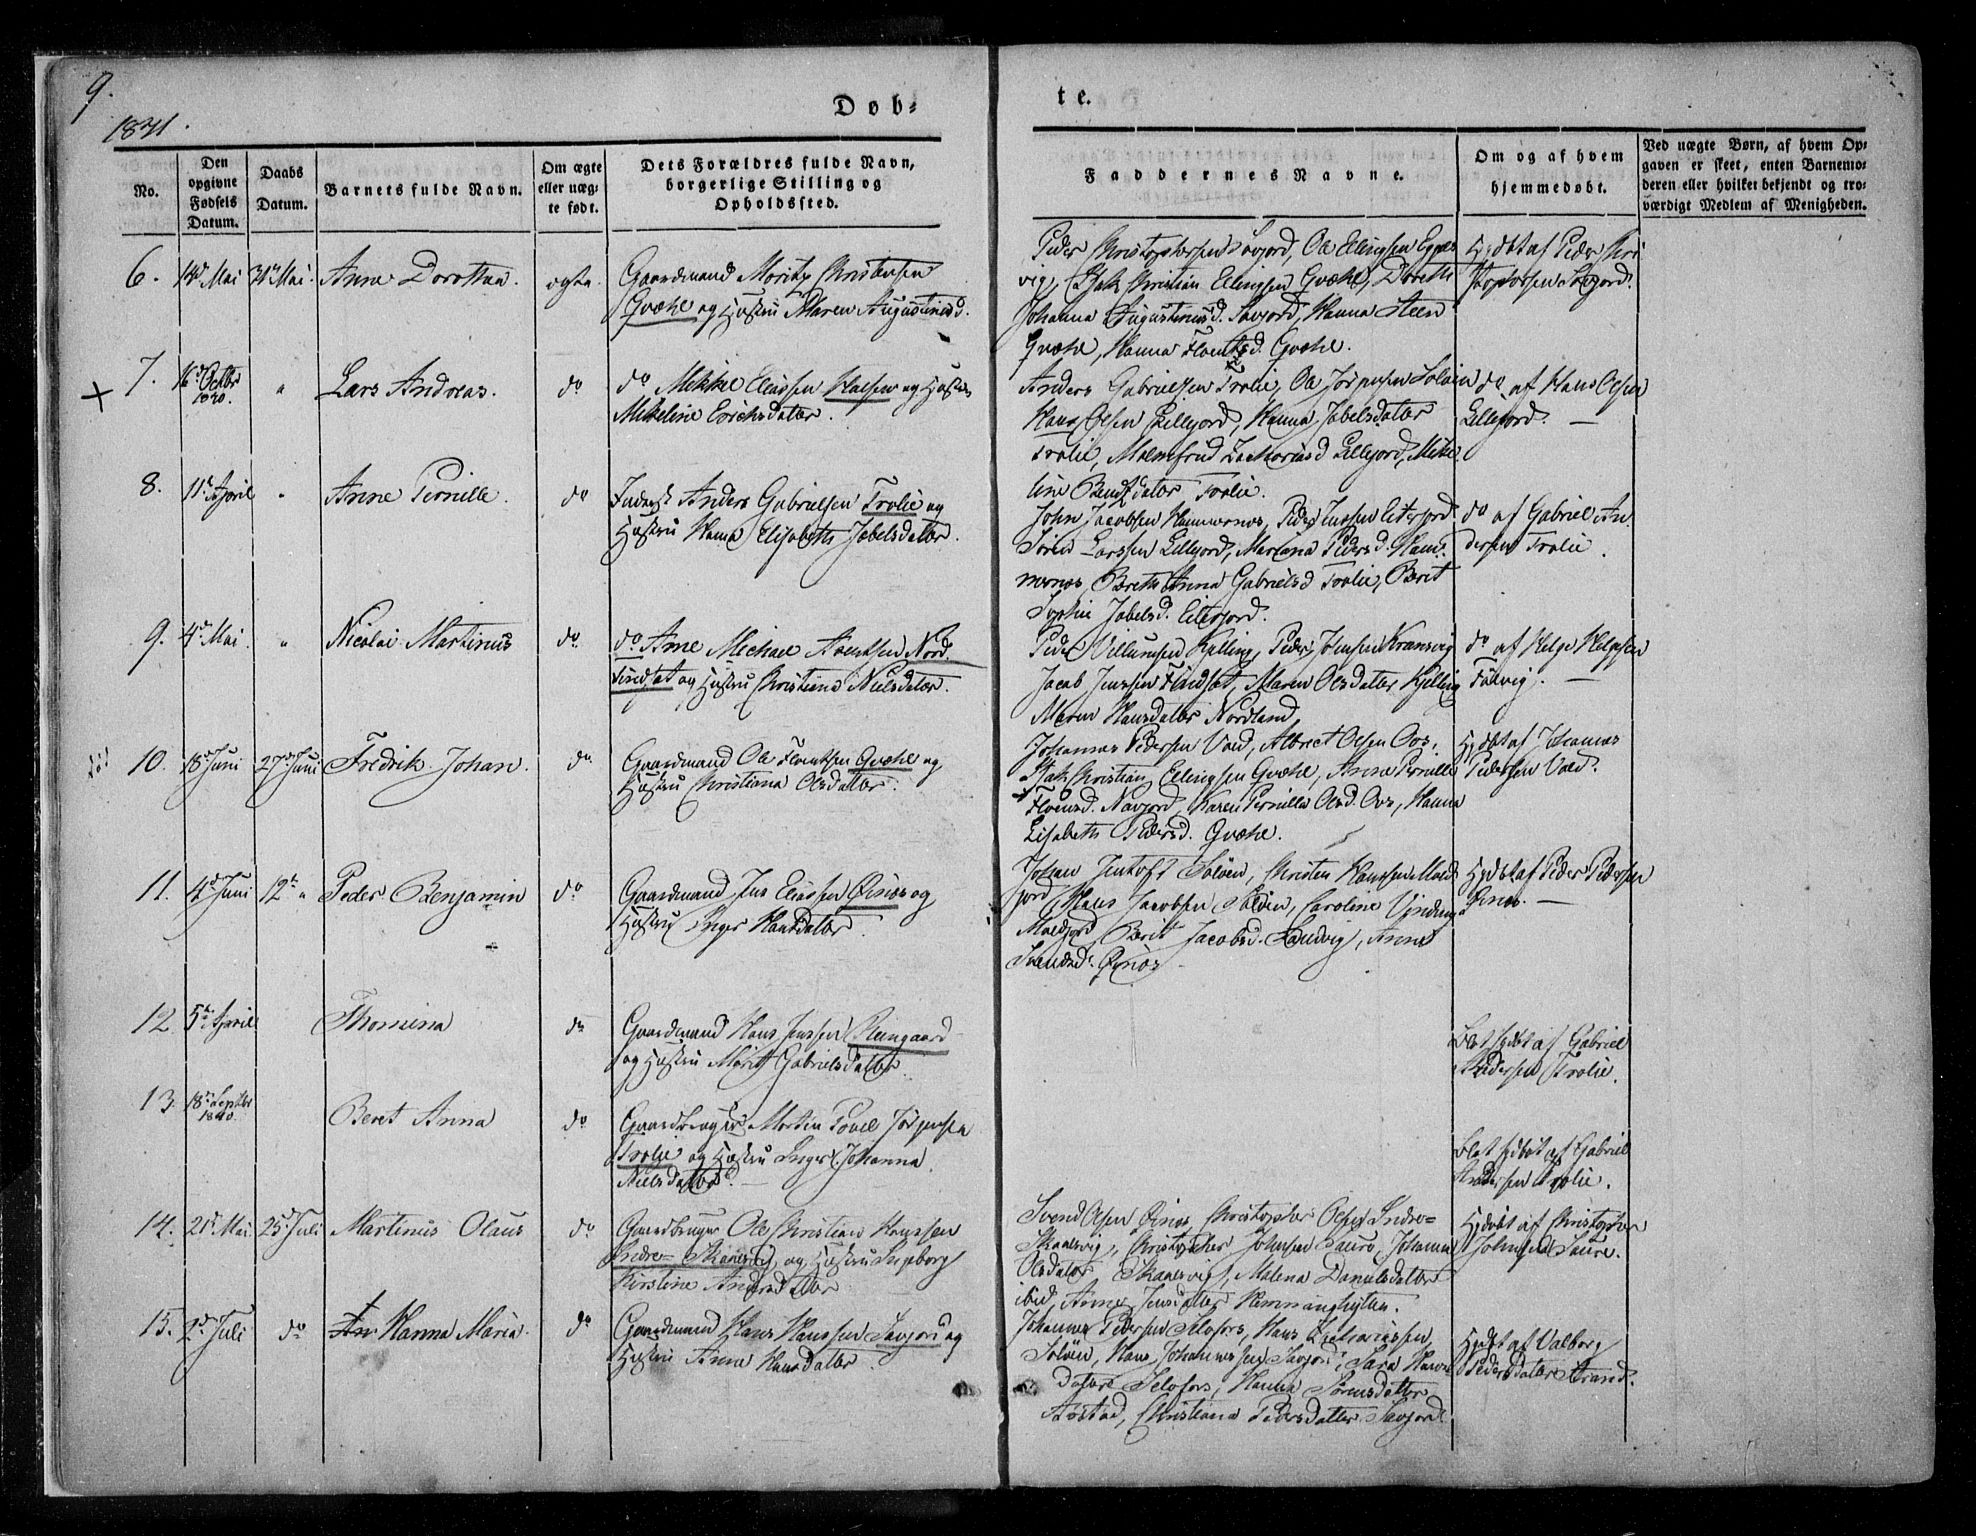 9.
1841.
Døb-
te.
No.
Den opgivne Fødsels Datum.
Daabs Datum.
Barnets fulde Navn.
Om ægte eller uæg-te født.
Dets Forældres fulde Navn, borgerlige Stilling og Opholdssted.
Faddernes Navne.
Om og af hvem hjemmedøbt.
Ved uægte Børn, af hvem Op-gaven er skeet, enten Barnemo-deren eller hvilket bekjendt og tro-værdigt Medlem af Menigheden.
6. 14d Mai 31te Mai. Anne Dorothea. ægte.
Gaardmand Moritz Christensen
Qvæhl og Hustru Maren Augustinusd.
Peder Christophersen Savjord, Ole Ellingsen
vig, Isak Christian Ellingsen Qvæhl, Dorethe
Johanna Augustinusd. Savjord, Hanna Steen
Qvæhl, Hanna Floentsd. Qvæhl.
Hjdøbt af Peder Chri
Savjord.
7. 16d Octbr 1840. " Lars Andreas. do
do Mikkel Eliassen Halsen og Hustru
Mikeline Erichsdatter.
Anders Gabrielsen Trolie, Ole Jørgensen Solöen
Hans Olsen Lillejord, Hanna Jobelsdatter
Trolie, Malmfrid Zachariasd Lillejord, Mike
line Bendtzdatter Trolie.
do af Hans Olsen
Lillejord. —
8. 11te April " Anne Pernille. do
Inderst Anders Gabrielsen Trolie og
Hustru Hanna Elisabeth Jobelsdatter.
John Jacobsen Hammernæs, Peder Jenssen Eiterjord
Søren Larssen Lillejord, Mariana Pedersd. Ham-
mernæs, Bereth Anna Gabrielsd Trolie, Berit
Sophie Jobelsd. Eiterjord.
do af Gabriel An
dersen Trolie.
9. 4de Mai. " Nicolai Martinus do
do Arne Michael Arentsen Nord
findset og Hustru Christiana Nielsdatter.
Peder Willumsen Kjelling, Peder Johnsen Kransvig
Jacob Jenssen Findset, Maren Olsdatter Kjelling
Maren Hansdatter Nordland
do af Helge Helgesen
10. 18d Juni 27d Juni Fredrik Johan. do
Gaardmand Ole Floentsen Qvæhl og
Hustru Christiana Olsdatter.
Johannes Pedersen Vold, Albrect Olsen Oos,
Isak Christian Ellingsen Qvæhl, Anne Pernille
Floentsd. Navjord, Karen Pernilla Olsd. Oos, Hanna
Elisabeth Pedersd. Qvæhl.
Hjdøbt af Johannes
Pedersen Vold.
11. 4d Juni 12te " Peder Benjamin do
Gaardmand Jens Eliassen Øinæs og
Hustru Inger Hansdatter.
Johan Jentoft Solöen, Christen Hanssen Mold
jord, Hans Jacobsen Solöen, Caroline
Moldjord Berit Jacobsd. Sandvig, Anne
Svendsd. Øinæs
Hjdøbt af Peder Pedersen
Øinæs. —
12 5te April Thomina do
Gaardmand Hans Jenssen Reingaard
og Hustru Marit Gabrielsdatter.
Blot hjdøbt af Gabriel
Andersen Trolie.
13. 18de Septbr 1840. Beret Anna do
Gaardbruger Morten Povel Jørgensen
Trolie og Hustru Inger Johanna
Nielsdatter. —
Blot hjdøbt af Gabriel
Andersen Trolie.
14. 21d Mai 25d Juli Martinus Olaus do
Gaardbruger Ole Christian Hanssen
Indre- Skaalsvig og Hustru Ingeborg
Kirstine Andersdatter
Svend Olsen Øinæs, Christopher Olsen Indre-
Skaalsvig, Christopher Johnsen Saure, Johanna
Olsdatter Skaalsvig, Malena Danielsdatter
ibid, Anne Jensdatter Hemminghytten.
Hjdøbt af Christopher
Johnsen Saure.
15. 2d Juli do An Hanna Maria. do
Gaardmand Hans Hanssen Savjord og
Hustru Anna Hansdatter.
Johannes Pedersen Selofors, Hans Zachariassen
Solöen, Hans Johannessen Savjord, Sara Hans
datter Selofors, Hanna Sørensdatter
Aaseltad, Christiana Pedersdatter Savjord.
Hjdøbt af Valborg
Pedersdatter Strand.